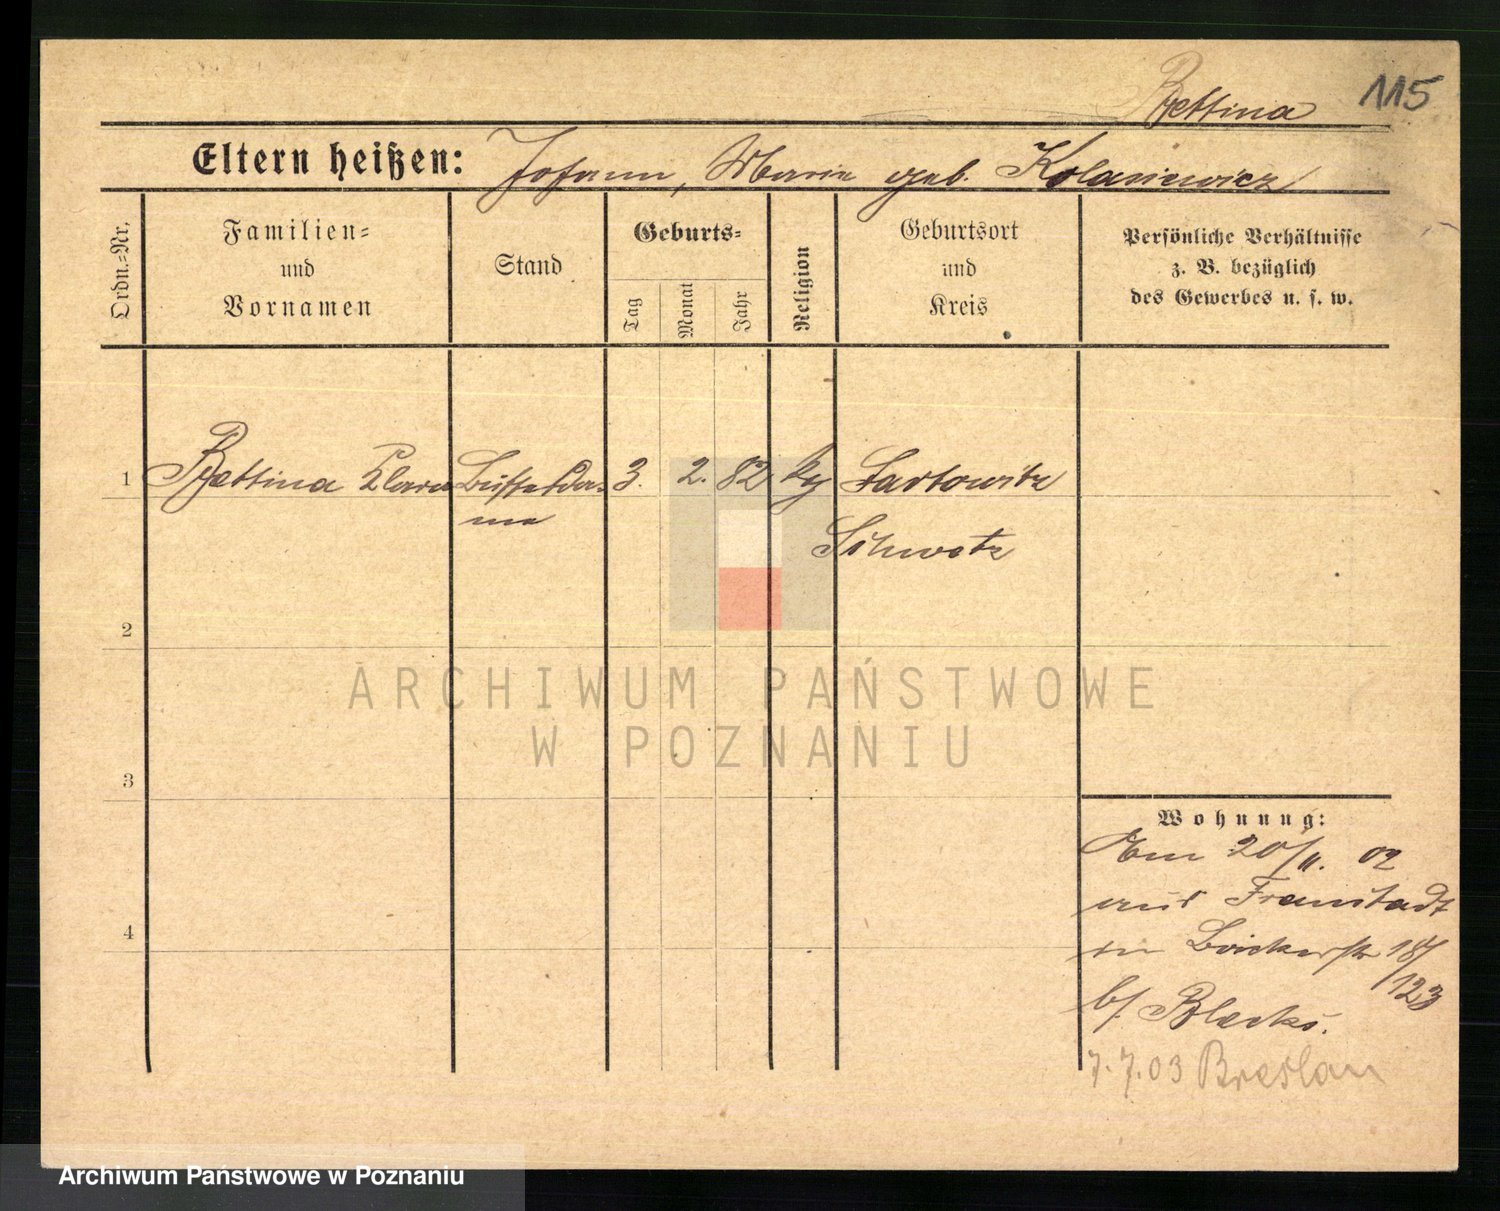 Bettina
115
Eltern heißen: Johann, Marie geb. Kolasiewicz
Ordn.-Nr.
Familien- und Vornamen
Stand
Geburts-
Tag
Monat
Jahr
Religion
Geburtsort und Kreis
Persönliche Verhältnisse
z. B. bezüglich
des Gewerbes u. s. w.
1 Bettina Clara 3. 2. 82 kg Sartowitz
Schwetz
2
ARCHIWUM PAŃSTWOWE
W POZNANIU
3
4
Wohnung:
Am 20/11. 02
aus Fraustadt
in 18/
123
b/
7.7.03 Breslau
Archiwum Państwowe w Poznaniu